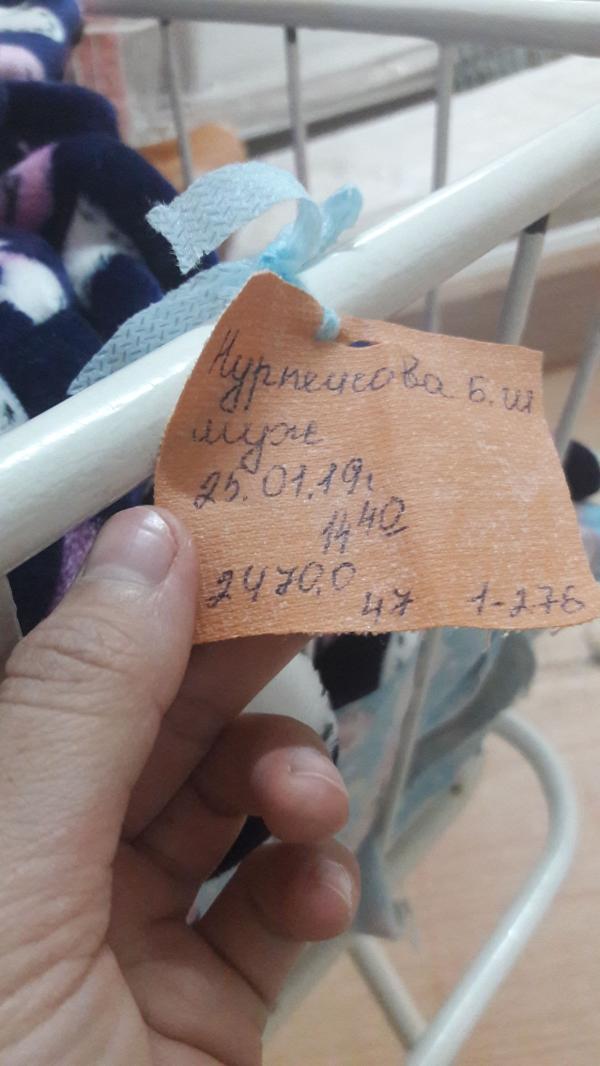 Нурпеисова Б.Ш
муж
25.01.19г
14 40
2470,0
47 1-276